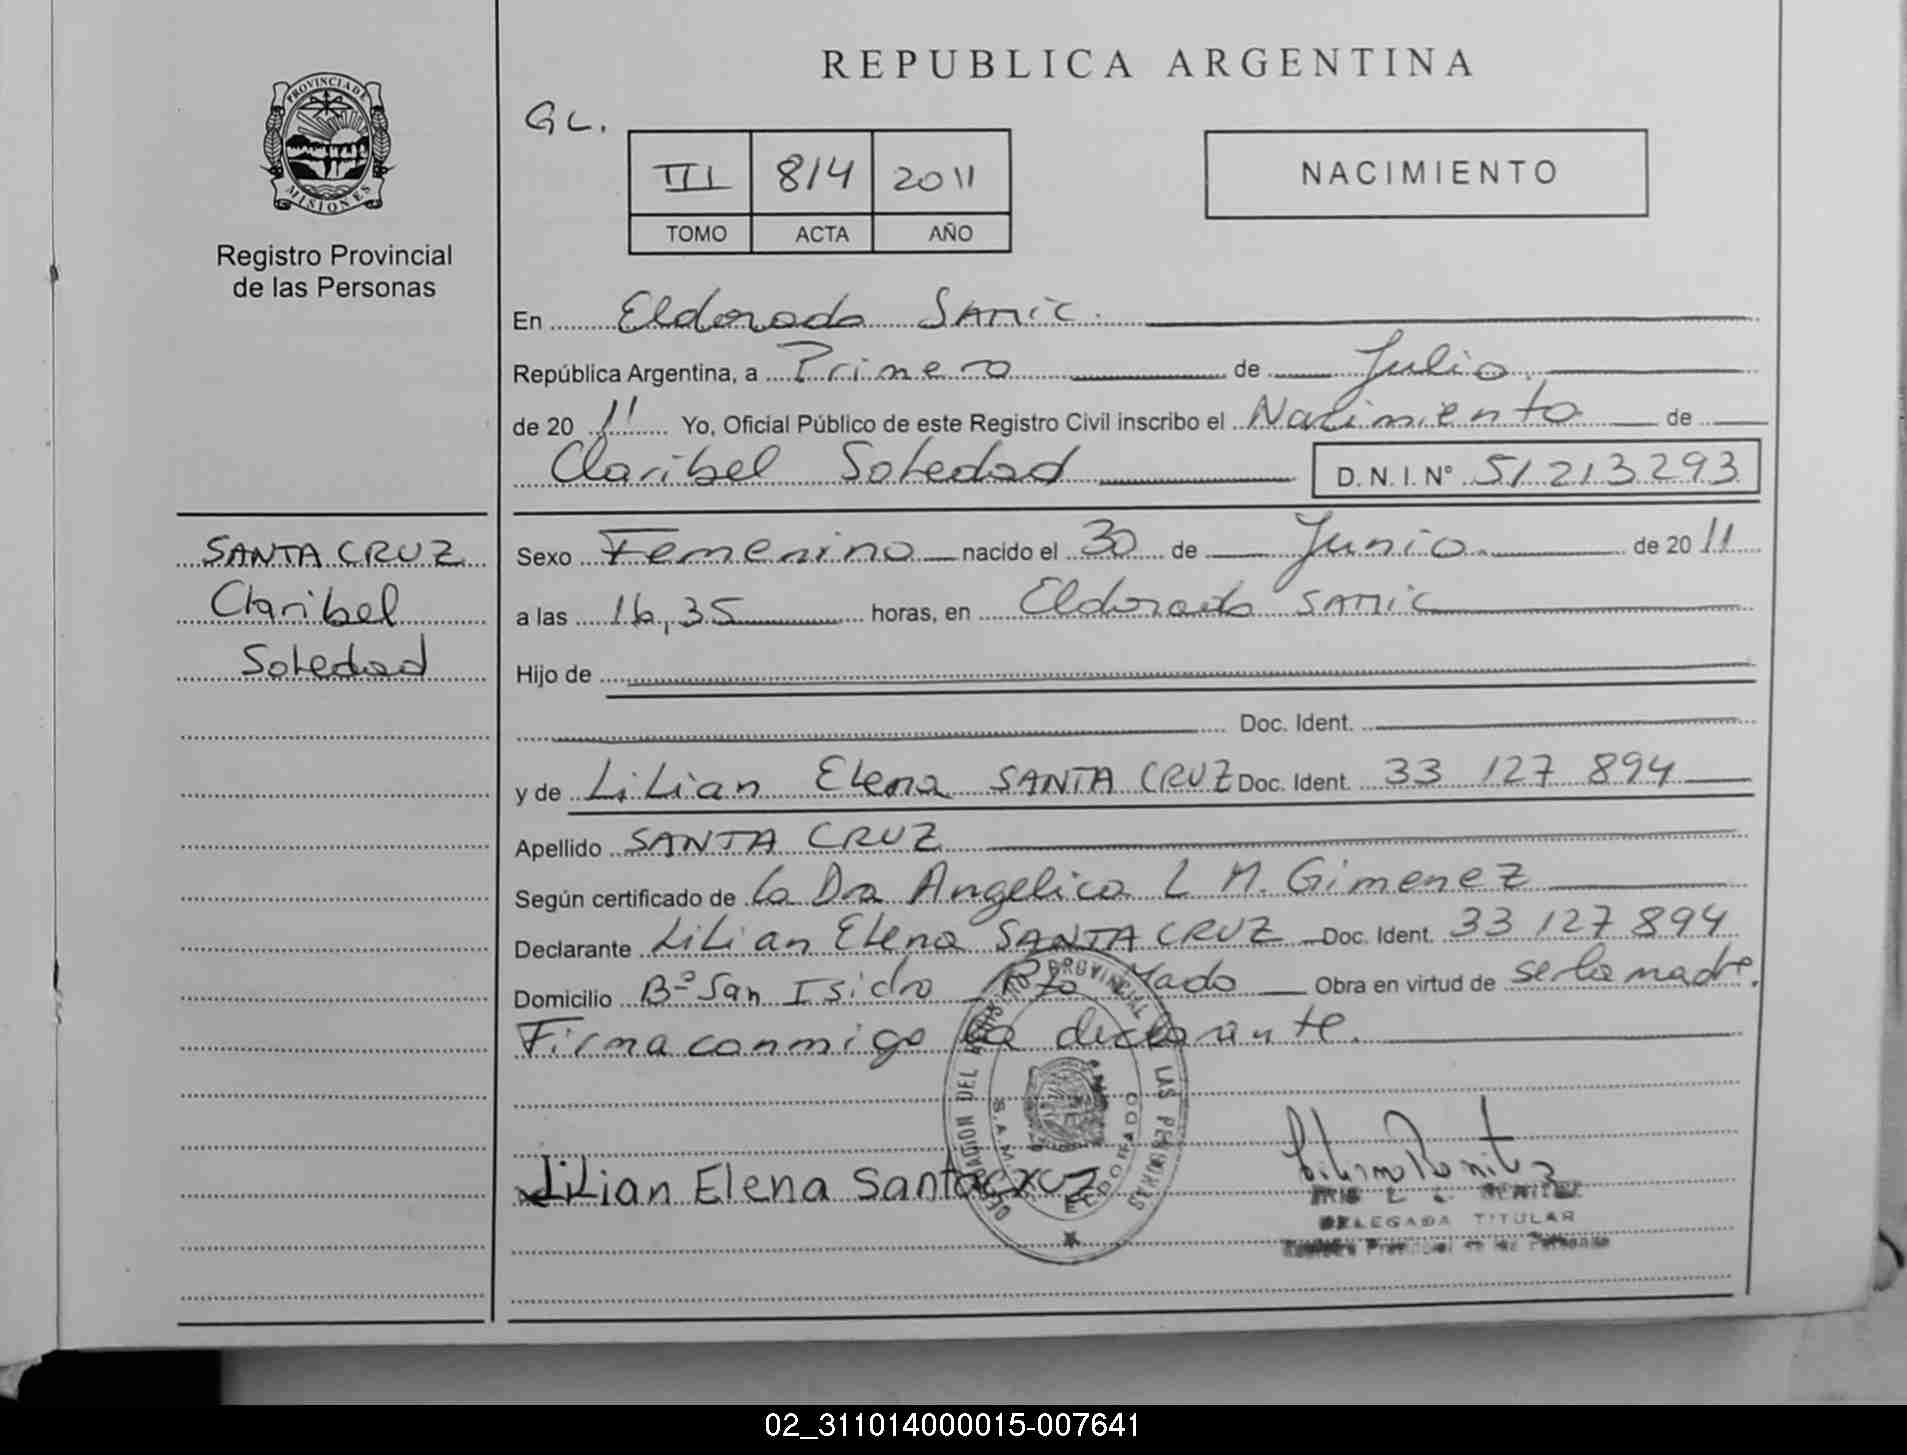 REPUBLICA ARGENTINA
PROVINCIA DE
MISIONES
Registro Provincial
de las Personas
GL.
III 814 2011
TOMO ACTA AÑO
NACIMIENTO
En Eldorado SAMIC.
República Argentina, a Primero de Julio
de 20 11 Yo, Oficial Público de este Registro Civil inscribo el Nacimiento de
Claribel Soledad D. N. I. N° 51213293
SANTA CRUZ
Claribel
Soledad
Sexo Femenino nacido el 30 de Junio de 20 11
a las 16,35 horas, en Eldorado SAMIC
Hijo de
Doc. Ident.
y de Lilian Elena SANTA CRUZ Doc. Ident. 33 127 894
Apellido SANTA CRUZ
Según certificado de la Dra Angelica L M. Gimenez
Declarante Lilian Elena SANTA CRUZ Doc. Ident. 33 127 894
Domicilio Bº San Isidro Pto Mado Obra en virtud de ser la madre.
Firma conmigo la declarante.
DELEGACION DEL REGISTRO PROVINCIAL LAS PERSONAS
S.A.M. ELDORADO
Lilian Elena Santacruz
DELEGADA TITULAR
Registro Provincial de las Personas
02_311014000015-007641